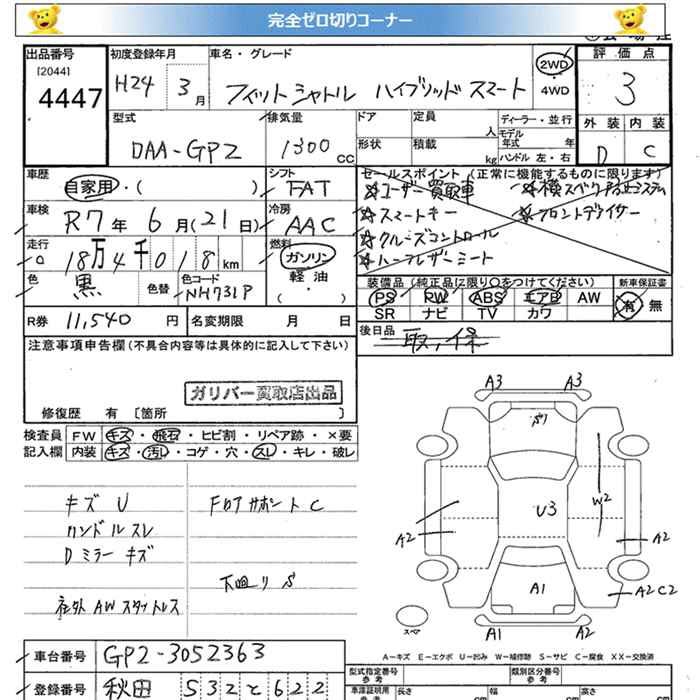 完全ゼロ切りコーナー
出品番号 初度登録年月 車名・グレード 評価点
[2044]
4447 H24 3月 フィットシャトル ハイブリッド スマート 2WD・4WD 3
型式 排気量 ドア 定員 人 ディーラー・並行 外装 内装
DAA-GP2 1300cc 形状 積載 kg モデル年式 年 ハンドル 左・右 D C
車歴 自家用・( ) シフト FAT セールスポイント(正常に機能するものに限ります)
ユーザー買取車
車検 R7年 6月(21日) 冷房 AAC スマートキー フロントデアイサー
走行 18万4千018km 燃料 ガソリン クルーズコントロール
軽油 ハーフレザーシート
色 黒 色替 色コード NH731P ( ・ ) 装備品(純正品に限り○をつけてください) 新車保証書
PS RW ABS エアB AW 有・無
SR ナビ TV カワ
R券 11,540円 名変期限 月 日 後日品 取、保
注意事項申告欄(不具合内容等は具体的に記入して下さい)
ガリバー買取店出品
修復歴 有 〔箇所 〕
検査員 FW キズ・飛石・ヒビ割・リペア跡・×要
記入欄 内装 キズ・汚レ・コゲ・穴・スレ・キレ・破レ
キズ U フロアサポート C
ハンドルスレ
Dミラーキズ
下廻り S
社外AWスタッドレス
A3 A3
S7
W2
U3
A2 A2
A1
A2 C2
スペア
A1 A2
A－キズ E－エクボ U－凹み W－補修跡 S－サビ C－腐食 XX－交換済
車台番号 GP2-3052363 型式指定番号 参考 類別区分番号 参考
登録番号 秋田 532 と 622 車庫証明用 参考 長さ cm 幅 cm 高さ cm